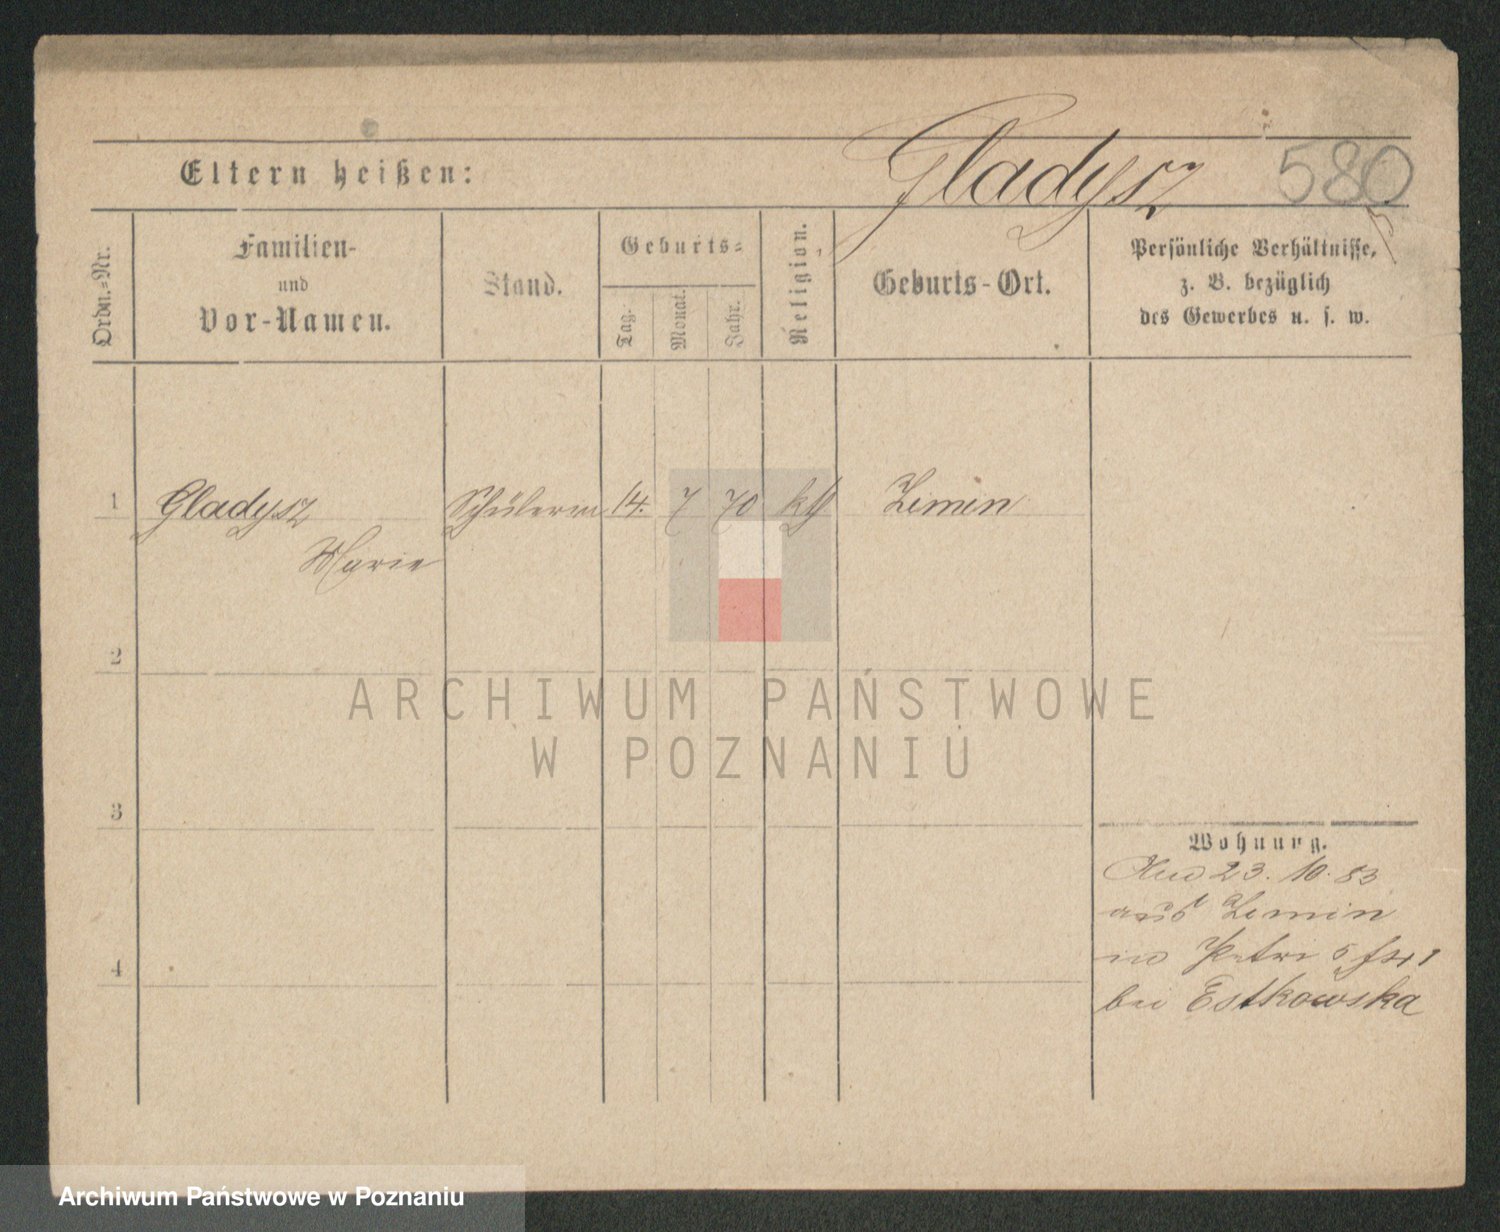 Gladysz 580
Eltern heißen:
Ordn.=Nr.
Familien-
und
Vor-Namen.
Stand.
Geburts=
Tag.
Monat.
Jahr.
Religion.
Geburts-Ort.
Persönliche Verhältnisse,
z. B. bezüglich
des Gewerbes u. s. w.
1 Gladysz Schülerin 14. 7 70 kth Zemin
Marie
2
ARCHIWUM PAŃSTWOWE
W POZNANIU
3
Wohnung.
23. 10. 83
aus Zemin
in Petri 5
4
bei Estkowska
Archiwum Państwowe w Poznaniu